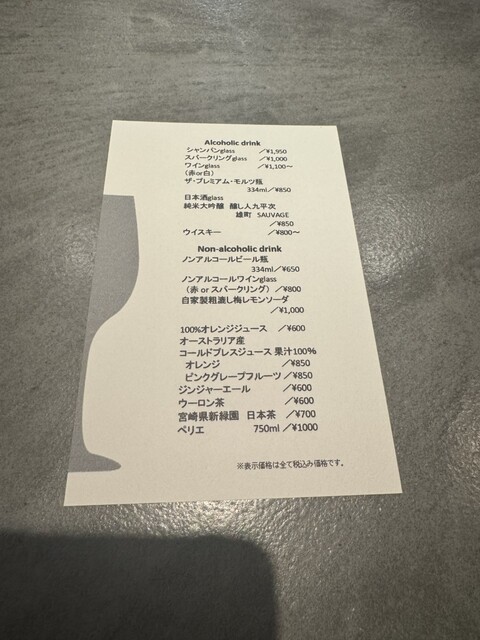 Alcoholic drink
シャンパンglass ／¥1,950
スパークリングglass ／¥1,000
ワインglass ／¥1,100～
（赤or白）
ザ・プレミアム・モルツ瓶
334ml／¥850
日本酒glass
純米大吟醸 醸し人九平次
雄町 SAUVAGE
／¥850
ウイスキー ／¥800～
Non-alcoholic drink
ノンアルコールビール瓶
334ml／¥650
ノンアルコールワインglass
（赤 or スパークリング）／¥800
自家製粗漉し梅レモンソーダ
／¥1,000
100%オレンジジュース ／¥600
オーストラリア産
コールドプレスジュース 果汁100%
オレンジ ／¥850
ピンクグレープフルーツ ／¥850
ジンジャーエール ／¥600
ウーロン茶 ／¥600
宮崎県新緑園 日本茶 ／¥700
ペリエ 750ml ／¥1000
※表示価格は全て税込み価格です。